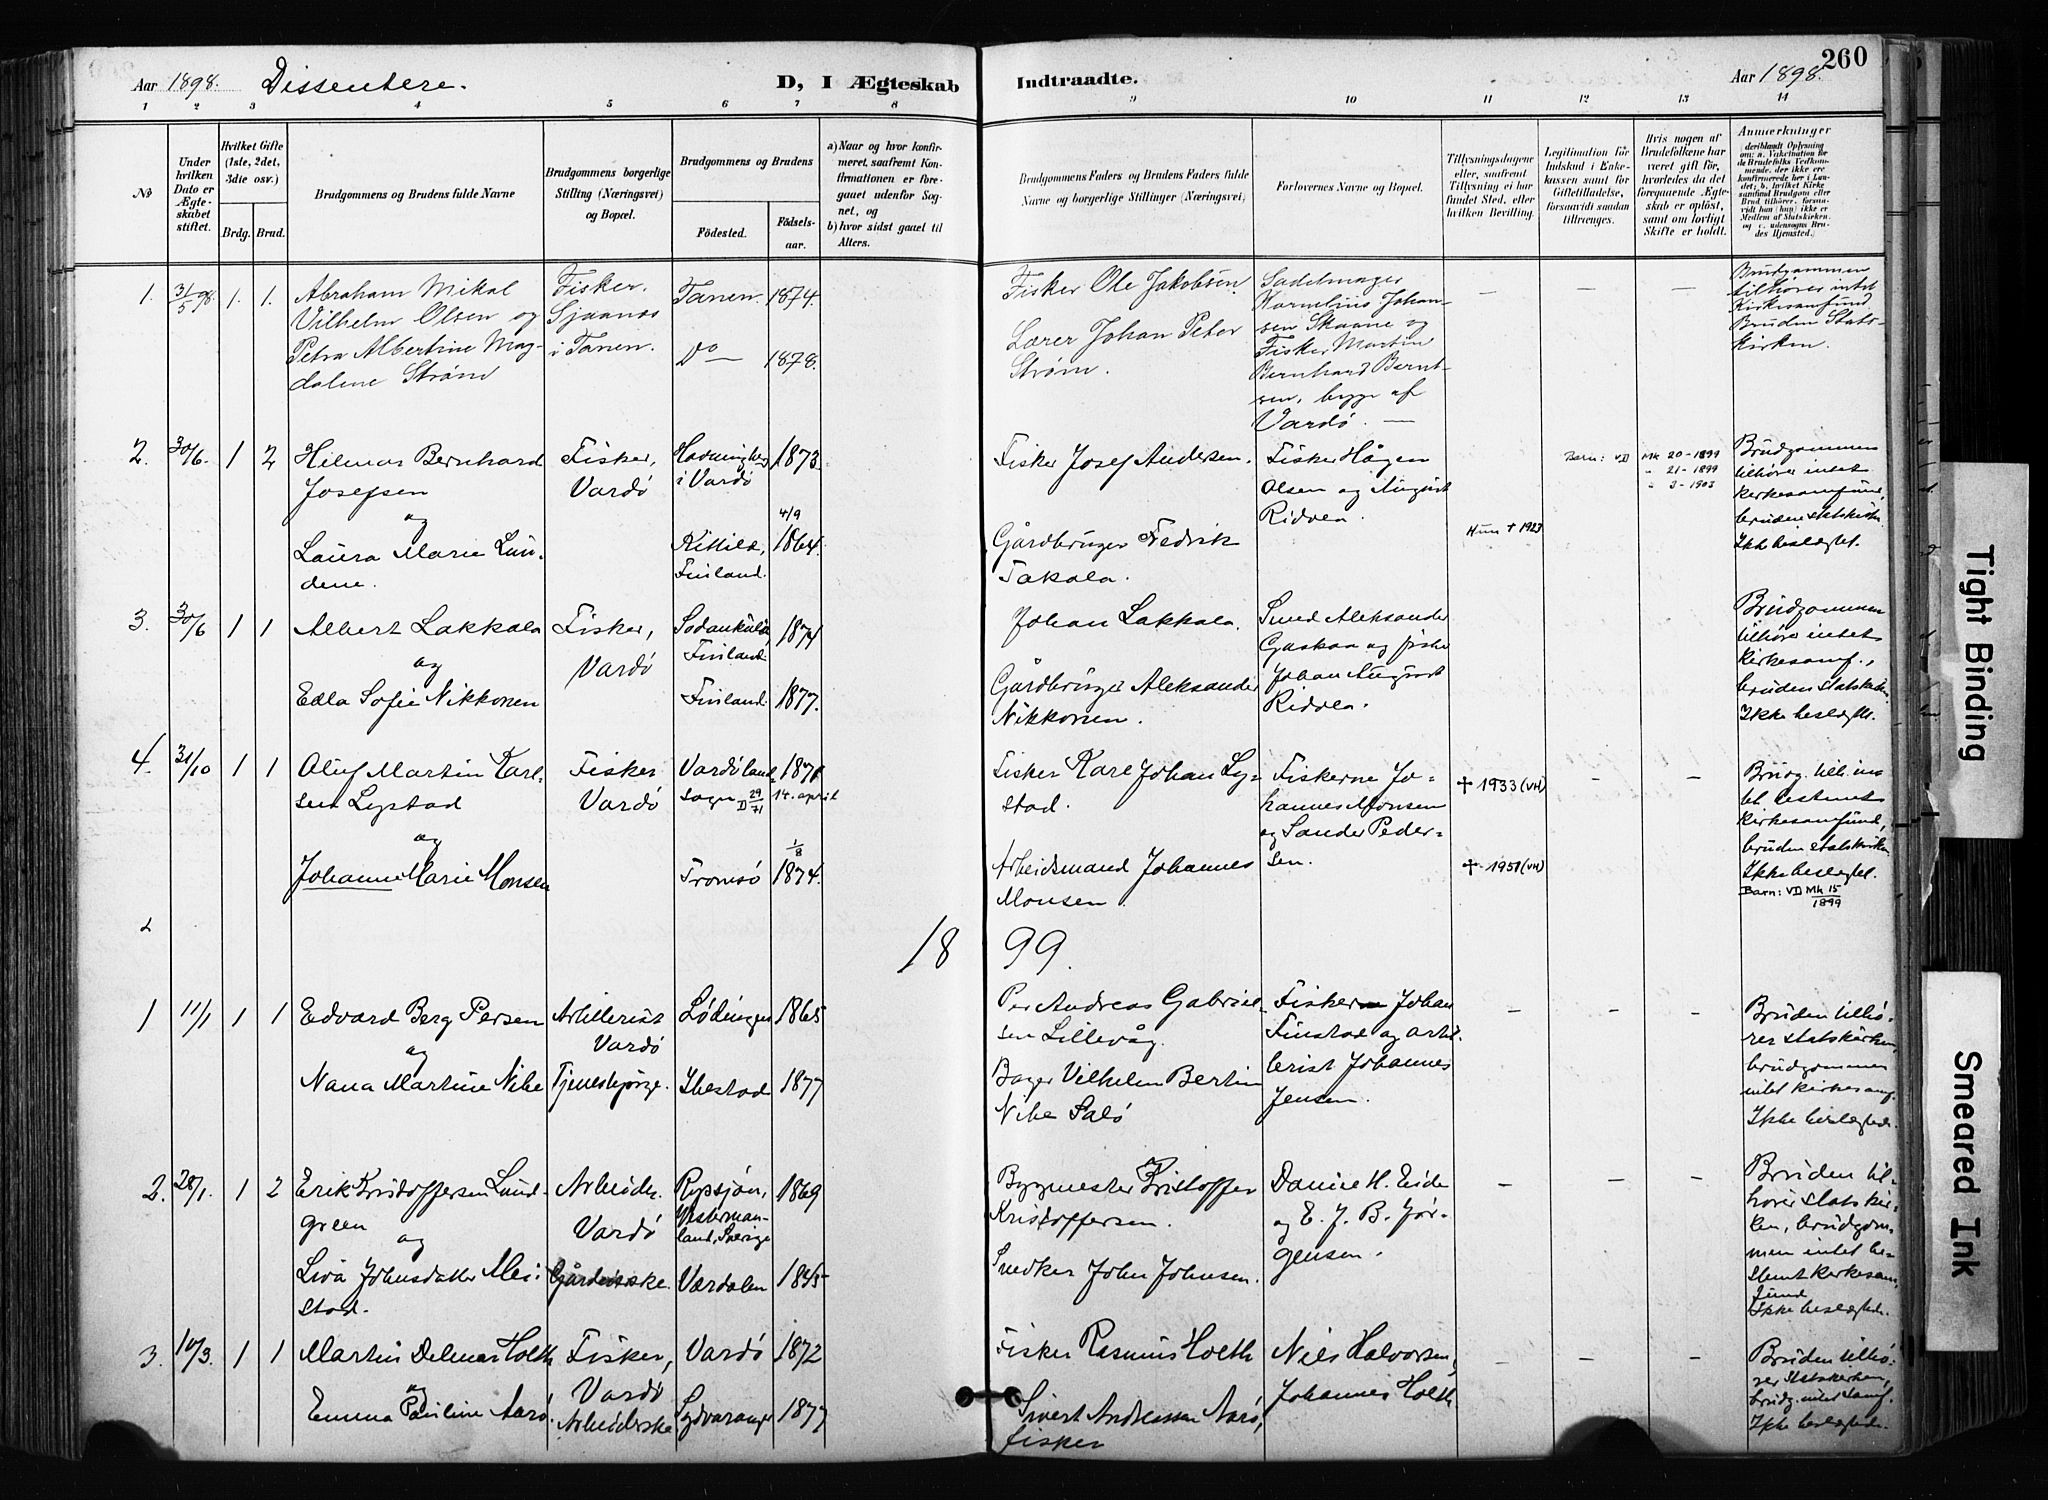 260
Aar 1898. Dissentere. D, I Ægteskab Indtraadte. Aar 1898.
1 2 3 4 5 6 7 8 9 10 11 12 13 14
No
Under hvilken Dato er Ægteskabet stiftet.
Hvilket Gifte (1ste, 2det, 3die osv.)
Brdg. Brud.
Brudgommens og Brudens fulde Navne
Brudgommens borgerlige Stilling (Næringsvei) og Bopæl.
Brudgommens og Brudens
Fødested.
Fødselsaar.
a) Naar og hvor konfirmeret, saafremt Konfirmationen er foregaaet udenfor Sognet, og
b) hvor sidst gaaet til Alters.
Brudgommens Faders og Brudens Faders fulde Navne og borgerlige Stillinger (Næringsvei)
Forlovernes Navne og Bopæl.
Tillysningsdagene eller, saafremt Tillysning ei har fundet Sted, efter hvilken Bevilling.
Legitimation for Indskud i Enkekassen samt for Giftetilladelse, forsaavidt saadan tiltrænges.
Hvis nogen af Brudefolkene har været gift før, hvorledes da det foregaaende Ægteskab er opløst, samt om lovligt Skifte er holdt.
Anmerkninger
1. 31/5 98. 1. 1.
Abraham Mikal
Vilhelm Olsen og
Petra Albertine Mag-
dalene Strøm
Fisker.
i Tanen.
Tanen. 1874.
Do — 1878.
Fisker Ole Jakobsen.
Lærer Johan Peter
Strøm.
Sadelmager
Kornelius Johan-
sen Skaane og
Fisker Martin
Bernhard Bernt-
sen, begge af
Vardø. —
— — —
Brudgommen
tilhører intet
Kirkesamfund
Bruden Stats-
kirken.
2. 30/6. 1 2
Hilmar Bernhard
Josefsen
og
Laura Marie Lun-
dene.
Fisker,
Vardø
Havningberg
i Vardø
1873.
4/9
Kittilä,
Finland.
1864.
Fisker Josef Andersen.
Gårdbruger Fedrik
Takala.
Fisker Hågen
Olsen og August
Ridola.
Hun + 1923
Barn: VD
Mk 20-1899
" 21-1899
" 3-1903
Brudgommen
tilhører intet
kirkesamfund,
bruden statskirken.
Ikke beslægtet.
3. 30/6 1 1
Albert Lakkala
og
Edla Sofie Nikkonen
Fisker,
Vardø
Sodankylä
Finland.
1874
Finland. 1877.
Johan Lakkala.
Gårdbruger Aleksander
Nikkonen.
Smed Aleksander
Gaskaa og fisker
Johan August
Ridola.
Brudgommen
tilhører intet
kirkesamf.,
bruden statskirken.
Ikke beslægtet.
4. 31/10 1 1
Oluf Martin Karl-
sen Lystad
og
Johanne Marie Monsen
Fisker
Vardø
Vardø land-
sogn D 29/71
1871
14. april
1/8
Tromsø 1874.
Fisker Karl Johan Ly-
stad.
Arbeidsmand Johannes
Monsen.
Fiskerne Jo-
hannes Monsen
og Sander Peder-
sen.
✝ 1933 (VH)
✝ 1951 (VH)
— —
Brudg. tilh. in-
tet bestemt
kirkesamfund,
bruden statskirken
Ikke beslægtet.
Barn: VD Mk 15/1899
1899.
1 11/1 1 1
Edvard Berg Persen
og
Nana Martine Nibe
Artillerist
Vardø
Tjenestepige.
Lødingen 1865
Ibestad 1877
Per Andreas Gabriel-
sen Lillevåg.
Bager Vilhelm Bertin
Nibe Salø
Fisker Johan
Finstad og artil-
lerist Johannes
Jensen.
— — —
Bruden tilhø-
rer statskirken,
brudgommen
intet kirkesamf.
Ikke beslægtede.
2. 28/1. 1 2
Erik Kristoffersen Lund-
green
og
Liva Johnsdatter Mei-
stad.
Arbeider.
Vardø
Vesterman-
land, Sverige
1869
Værdalen 1845
Bygmester Kristoffer
Kristoffersen.
Snedker John Johnsen.
Daniel H. Eide
og E. J. B. Jør-
gensen.
— — —
Bruden til-
hører statskir-
ken, brudgom-
men intet be-
stemt kirkesam-
fund
Ikke beslægtede.
3. 10/3. 1 1
Martin Delmar Holth
og
Emma Pauline Aarø
Fisker,
Vardø
Arbeiderske
Vardø 1872
Sydvaranger 1877
Fisker Rasmus Holth
Sivert Andreassen Aarø,
fisker
Niels Halvorsen,
Johannes Holth.
— — —
Bruden tilhø-
rer Statskirken,
brudg. intet samf.
Ikke beslægtede.
Tight Binding
Smeared Ink